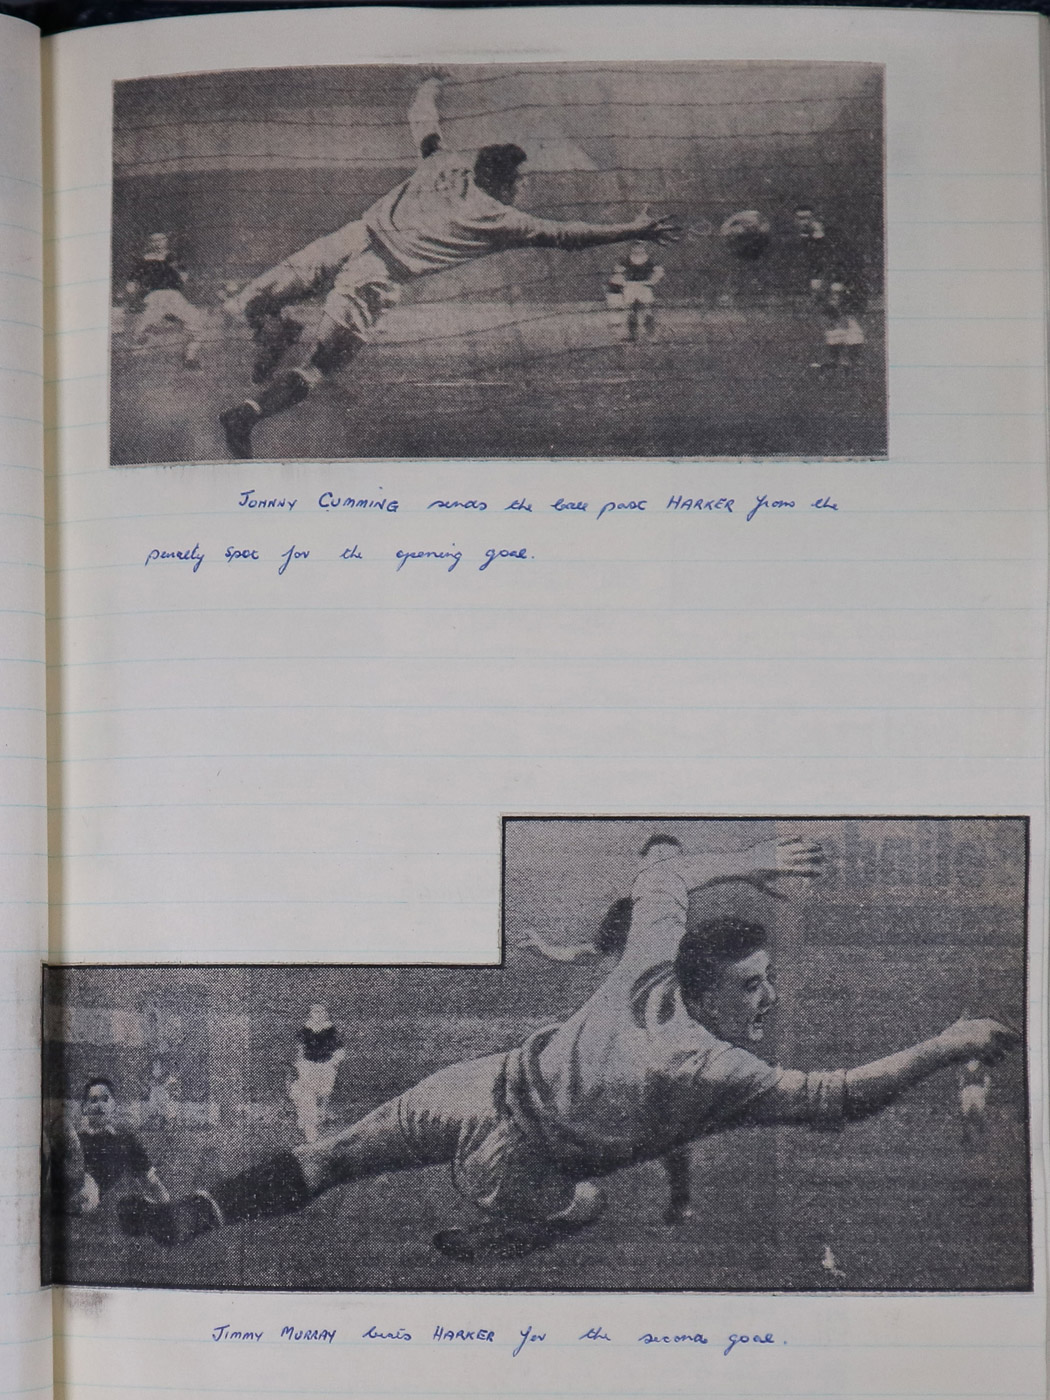 JOHNNY CUMMING sends the ball past HARKER from the
penalty spot for the opening goal.
JIMMY MURRAY beats HARKER for the second goal.